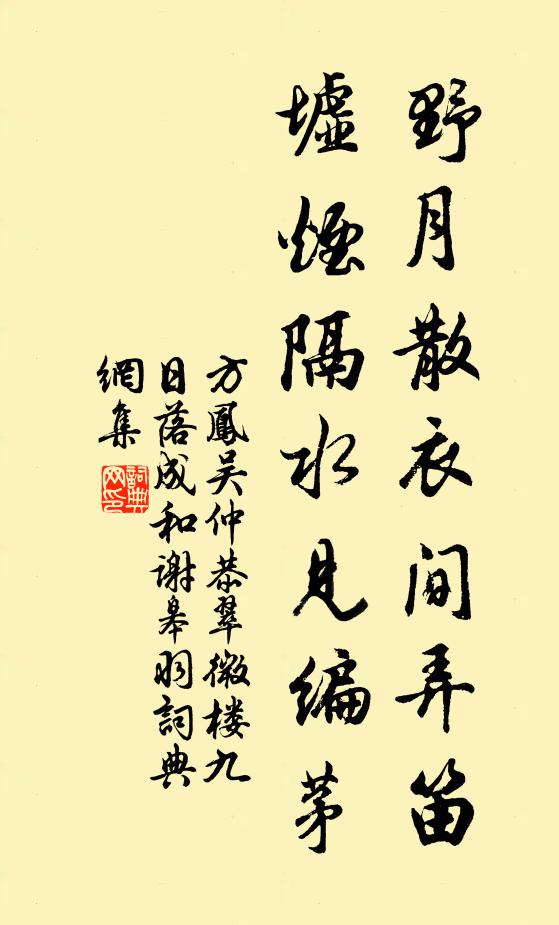 野月散衣间弄笛
墟煙隔水見编茅
方鳳吴仲恭翠微楼九
日落成和谢皋羽詞典
網集
詞典網印